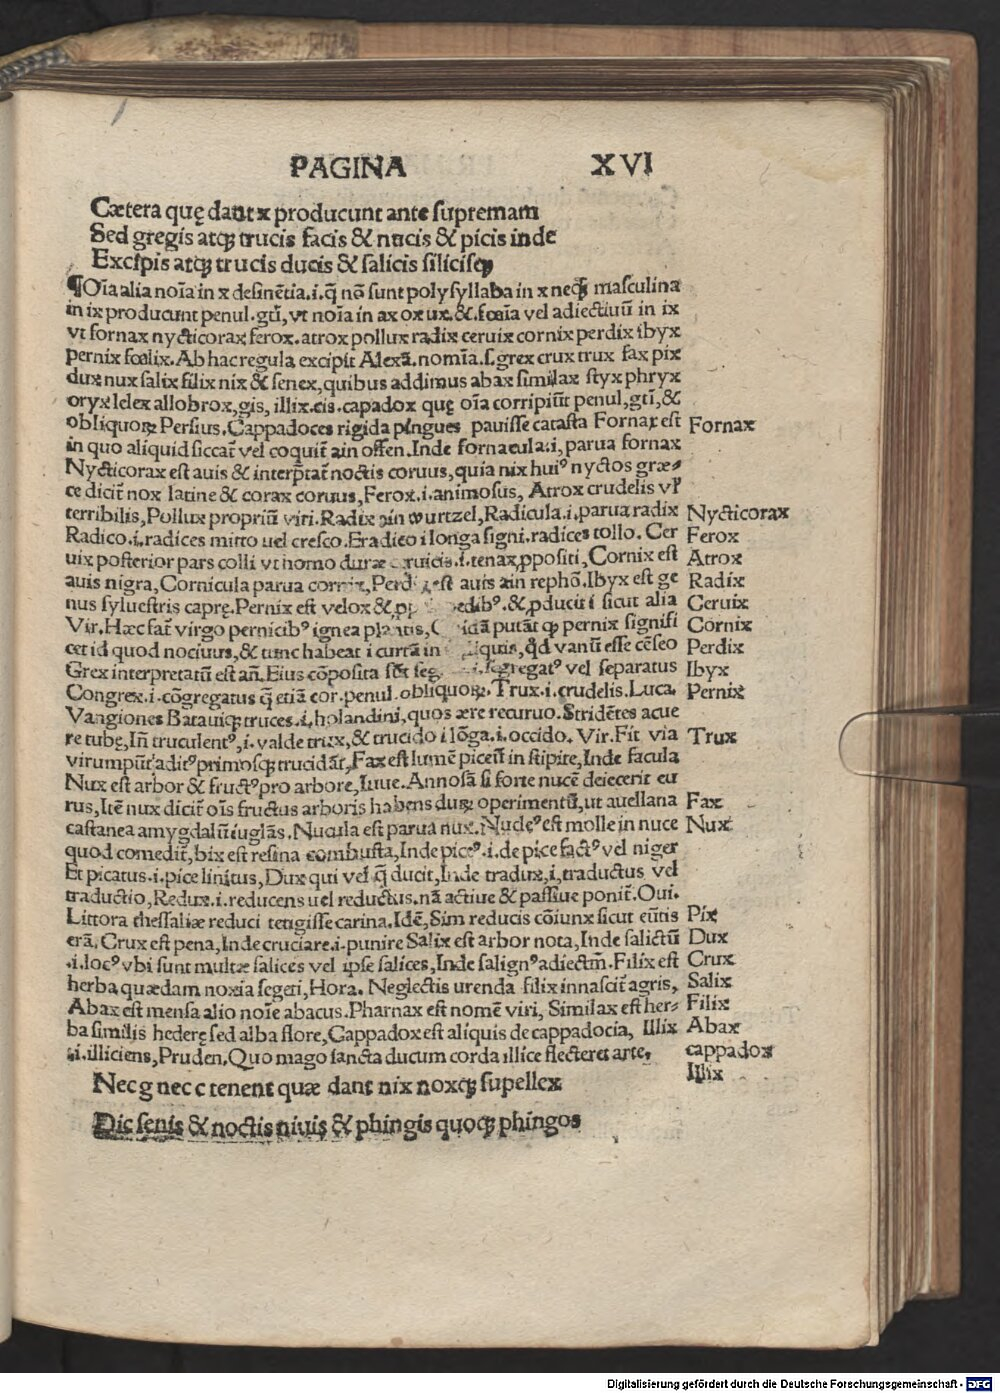 PAGINA XVI
Cætera quę dant x producunt ante supremam
Sed gregis atqꝫ trucis facis & nucis & picis inde
Excipis atqꝫ trucis ducis & salicis silicisqꝫ
¶Oīa alia noīa in x desinētia.i.q̄ nō sunt polysyllaba in x neqꝫ masculina
in ix producunt penul.gtī, vt noīa in ax ox ux.&.fœīa vel adiectiuū in ix
vt fornax nycticorax ferox.atrox pollux radix ceruix cornix perdix ibyx
pernix fœlix.Ab hac regula excipit Alexā.nomīa.s.grex crux trux fax pix
dux nux salix filix nix & senex,quibus addimus abax similax styx phryx
oryx lelex allobrox,gis, illix.cis.capadox quę oīa corripiūt penul,gtī,&
obliquoꝝ Persius.Cappadoces rigida pingues pauisse catasta Fornax est
in quo aliquid siccat̄ vel coquit̄ ain offen.Inde fornacula.i,parua fornax
Nycticorax est auis & interp̄tat̄ noctis coruus,quia nix huiꝰ nyctos græ-
ce dicit̄ nox latine & corax coruus,Ferox.i.animosus, Atrox crudelis vꝉ
terribilis,Pollux propriū viri.Radix ain wurtzel,Radicula.i.parua radix
Radico.i.radices mitto uel cresco.Eradico i longa signi.radices tollo. Cer
uix posterior pars colli vt homo duræ ceruicis.i.tenax ꝓpositi, Cornix est
auis nigra, Cornicula parua cornix, Perdix est auis ain rephō.Ibyx est ge
nus syluestris caprę.Pernix est velox & pedibꝰ.&.ꝓducit i sicut alia
Vir.Hæc fat̄ virgo pernicibꝰ ignea plantis, putāt qꝫ pernix signifi
cet id quod nociuus,& tunc habeat i curtā in obliquis,qd̄ vanū esse cēseo
Grex interpretatū est an̄.Eius cōposita sūt segregatꝰ vel separatus
Congrex.i.cōgregatus q̄ etiā cor.penul.obliquoꝝ. Trux.i.crudelis.Luca.
Vangiones Batauiqꝫ truces.i,holandini,quos ære recuruo.Stridētes acue
re tubę,In̄ truculentꝰ,i.valde trux,& trucido i lōga.i.occido. Vir.Fit via
vi rumpūt aditꝰ primosqꝫ trucidāt, Fax est lumē piceū in stipite,Inde facula
Nux est arbor & fructꝰ pro arbore, Iuue.Annosā si forte nucē deiecerit eu
rus, Itē nux dicit̄ oīs fructus arboris habens duꝝ operimentū,ut auellana
castanea amygdalū iuglās.Nucula est parua nux.Nudeꝰ est molle in nuce
quod comedit̄,bix est resina combusta,Inde piceꝰ.i.de pice factꝰ vel niger
Et picatus.i.pice linitus, Dux qui vel q̄ ducit, Inde tradux,i,traductus vel
traductio, Redux.i.reducens uel reductus.nā actiue & passiue ponit̄.Oui.
Littora thessaliæ reduci tetigisse carina.Idē,Sim reducis cōiunx sicut eūtis
erā. Crux est pena, Inde cruciare.i.punire Salix est arbor nota, Inde salictū
.i.locꝰ vbi sunt multæ salices vel ipse salices,Inde salignꝰ adiectm̄.Filix est
herba quædam noxia segeti, Hora. Neglectis urenda filix innascit̄ agris,
Abax est mensa alio noīe abacus.Pharnax est nomē viri, Similax est her-
ba similis hederę sed alba flore, Cappadox est aliquis de cappadocia, Illix
.i.illiciens,Pruden.Quo mago sancta ducum corda illice flecteret arte.
Nec g nec c tenent quæ dant nix noxqꝫ supellex
Dic senis & noctis niuis & phingis quoqꝫ phingos
Fornax
Nycticorax
Ferox
Atrox
Radix
Ceruix
Cornix
Perdix
Ibyx
Pernix
Trux
Fax
Nux
Pix
Dux
Crux
Salix
Filix
Abax
cappadox
Illix
Digitalisierung gefördert durch die Deutsche Forschungsgemeinschaft - DFG